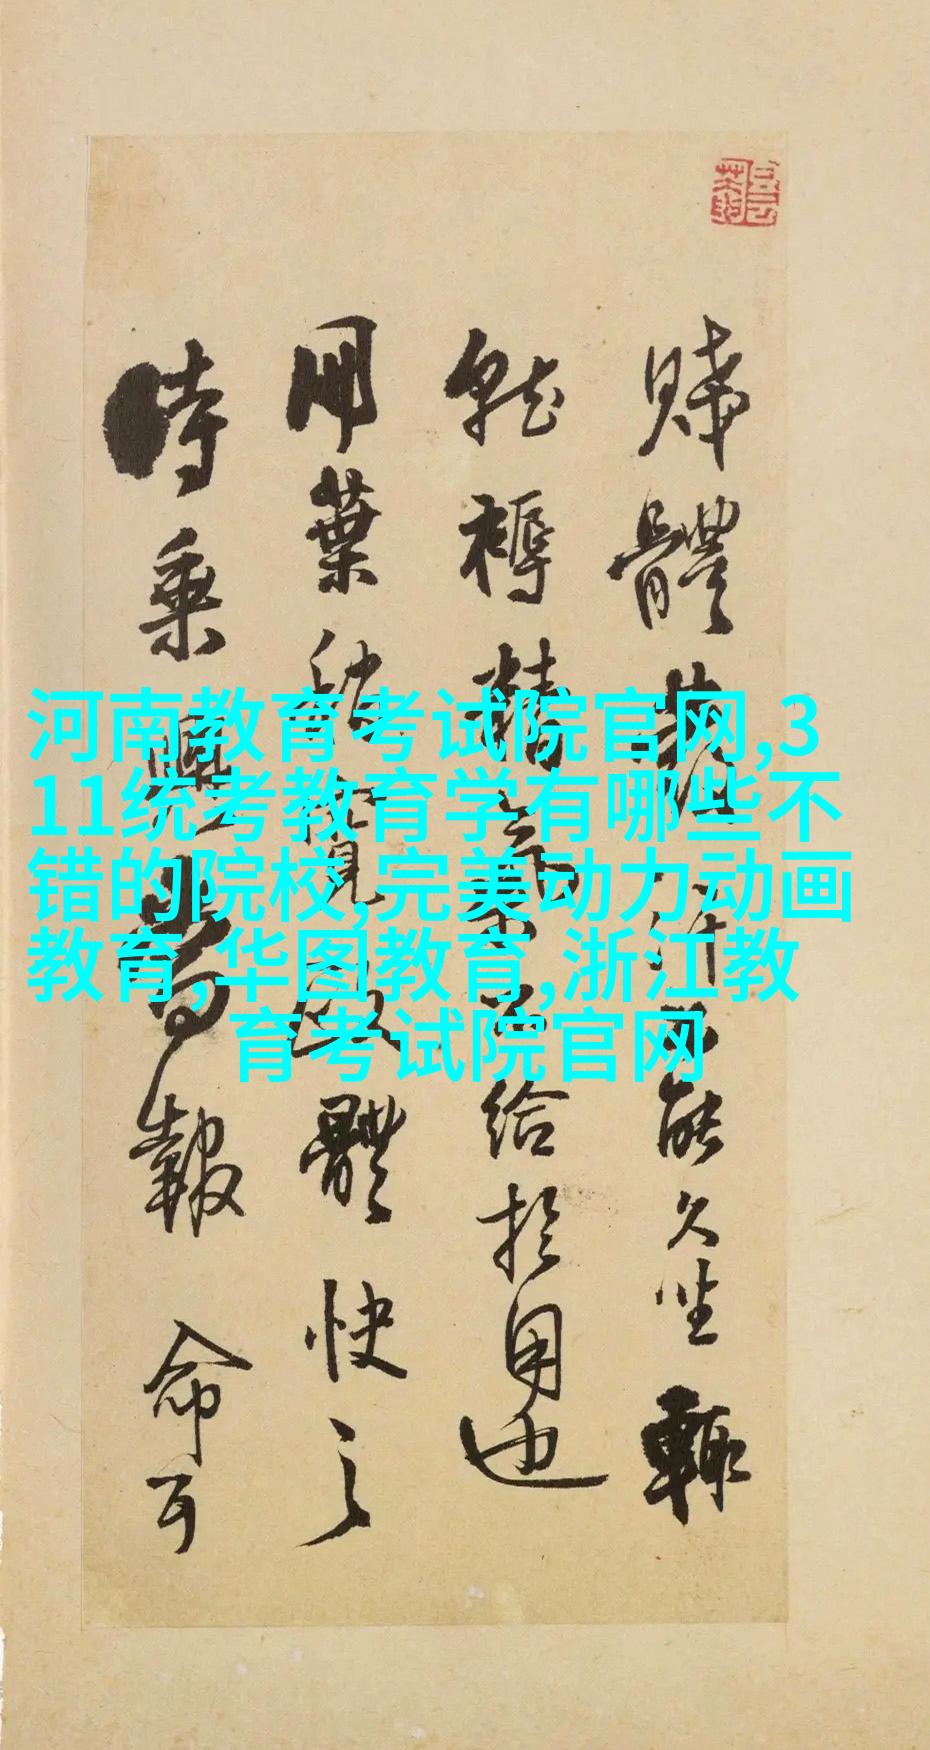 河南教育考试院官网,3
11统考教育学有哪些不
错的院校,完美动力动画
教育,华图教育,浙江教
育考试院官网
賤體 不能久坐輒
就褥精 給於用也
用葉 覺 體快之
時乘興 報命耳